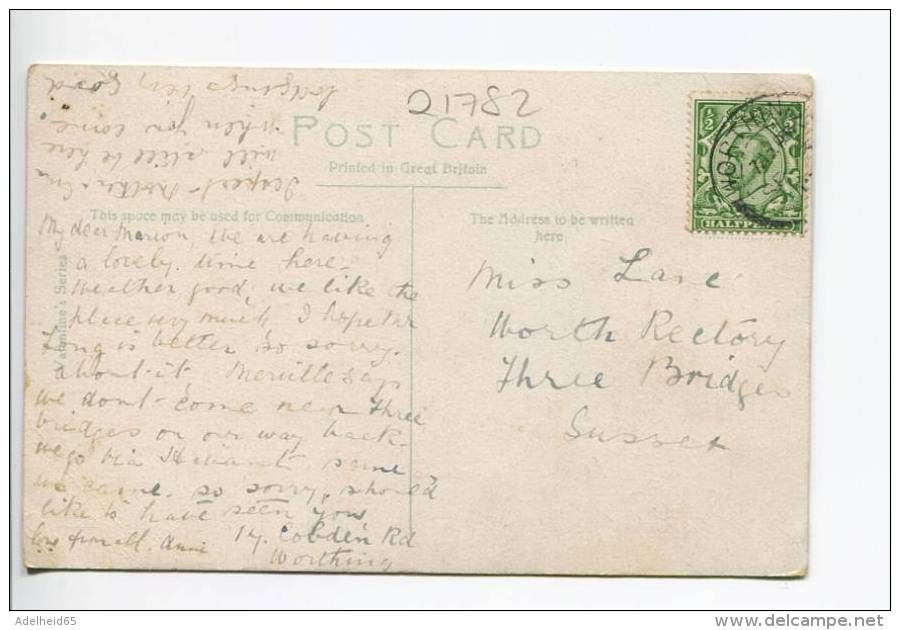 21782
POST CARD
Printed in Great Britain
This space may be used for Communication
The Address to be written
here
Valentine's Series
WORTHING
HALFPENNY
My dear Marion, We are having
a lovely time here.
Weather good, we like the
place very much I hope Mr
Long is better so sorry
about it Merville says
we dont come near Three
bridges on our way back
we go via Havant same
we came. so sorry, should
like to have seen you
love from all. Annie
14. Cobden Rd
Worthing
expect Mother &
will still be here
when you come.
lodgings very good
Miss Lane
Worth Rectory
Three Bridges
Sussex
Adelheid65
delcampe.net